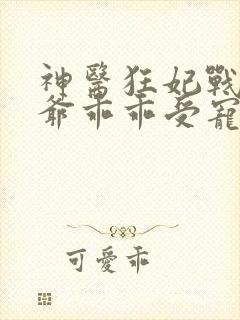 神醫狂妃戰
爺乖乖受寵
可愛乖